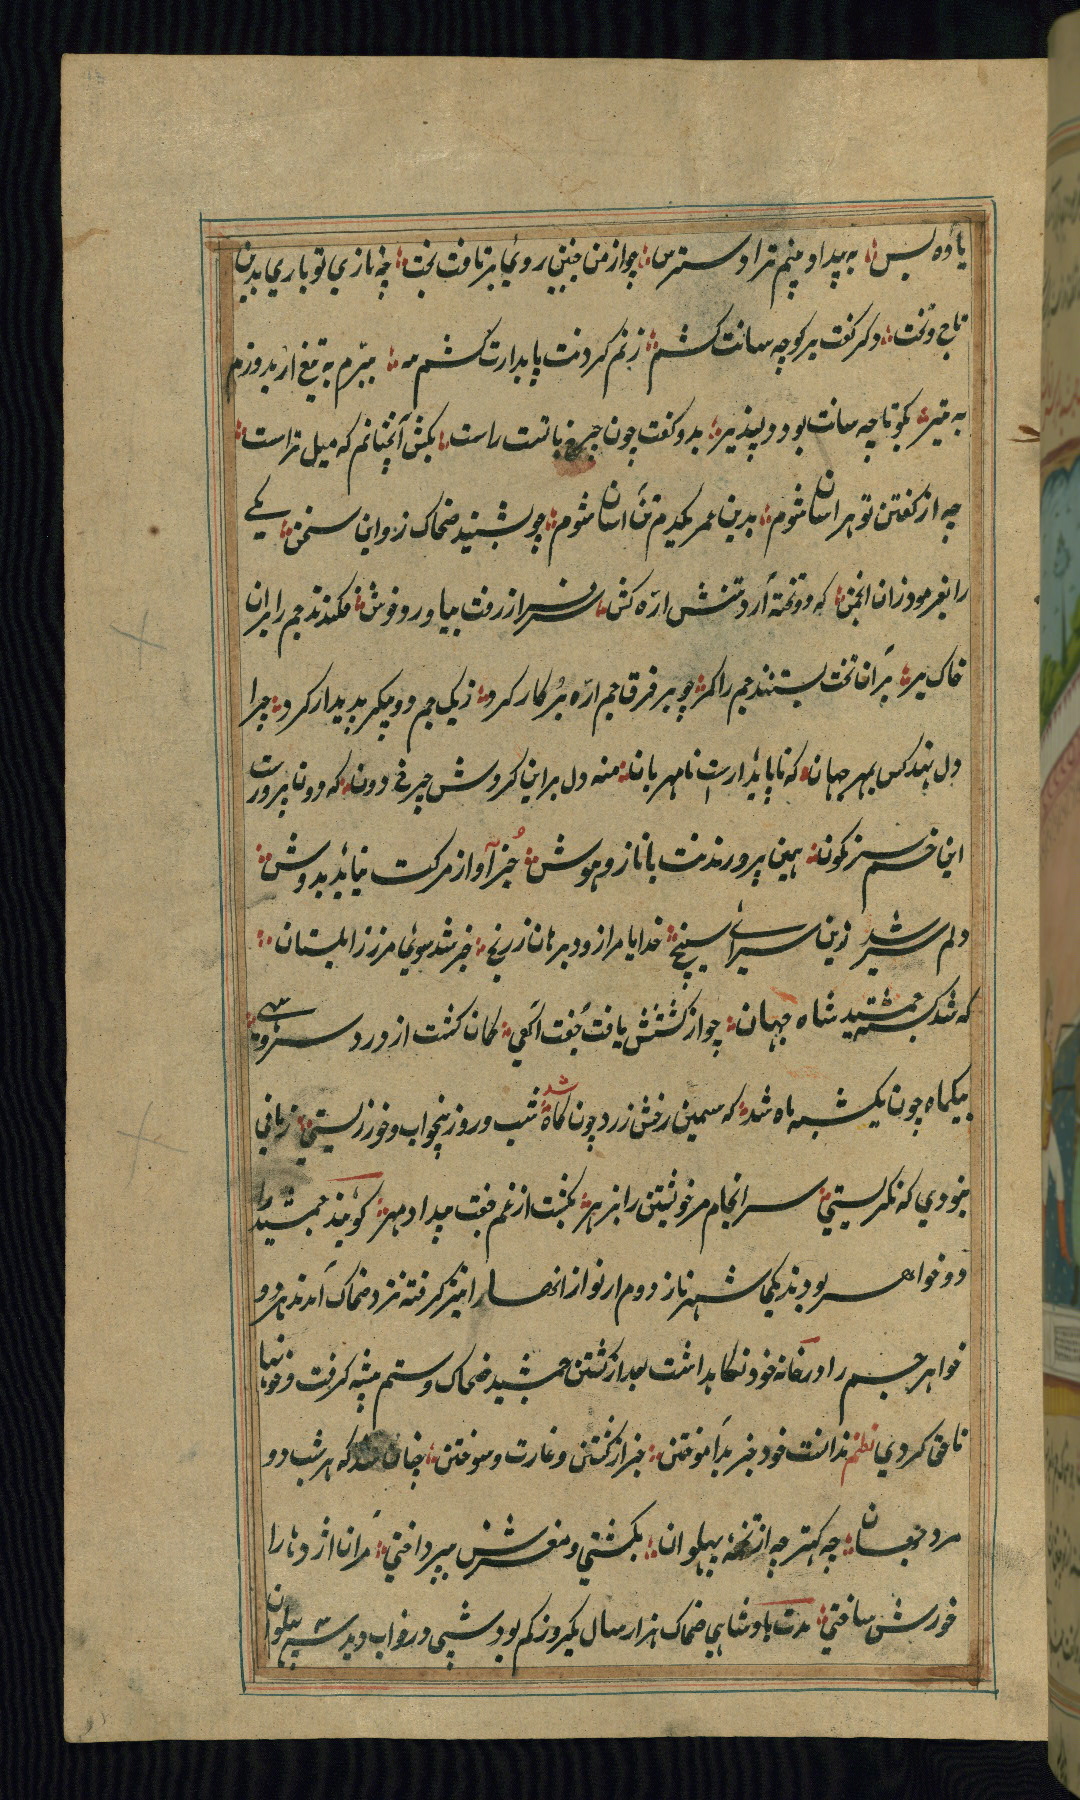 یاوه بس ؞ به بیداد منم ترا دسترس ؞ چو از من چنین روی برتافت بخت ؞ چه نازی تو باری بدین
تاج و تخت ؞ دگر گفت برگو چه سانت کشم ؞ زنم گردنت یا بدارت کشم ؞ ببرم به تیغ ار بدوزم
به تیر ؞ بگو تا چه سانت بود دلپذیر ؞ بدو گفت چون چرخ با تست راست ؞ بکش آنچنانم که میل تراست ؞
چه از گفتن تو هراسان شوم ؞ بدین عمر یکدم تن آسان شوم ؞ چو بشنید ضحاک ز و این سخن ؞ یکی
را بفرمود زان انجمن ؞ که دو تخته آرد تنش اره کن ؞ سرافراز رفت بیاورد خوش ؞ فکندند جم را بران
خاک بر ؞ بر آن تخت بستند جم را کمر ؞ چو بر فرق جم اره بر کار کرد ؞ ز یک جم دو پیکر پدیدار کرد ؞ چرا
دل نهد کس بمهر جهان ؞ که ناپایدارست نامهربان ؞ منه دل براین گردش چرخ دون ؞ که دون پرورست
این خم سرنگون ؞ همین پرورندت با ناز و هوش ؞ جز آواز مرکت نیاید بدوش ؞
دلم سیر شد زین سرای سپنج ؞ خدایا مرا زود برهان ز رنج ؞ خبر شد سوی مرز زابلستان ؞
که شد کشته جمشید شاه جهان ؞ چو از کشتنش یافت جفت آگهی ؞ کمان گشت از درد سرو سهی ؞
بیکماه چون یکشبه ماه شد ؞ که سیمین رخش زرد چون کاه شد ؞ شب و روز بیخواب و خور زیستی ؞ زمانی
نبودی که نگریستی ؞ سرانجام مر خویشتن را بزهر ؞ بکشت از غم جفت بیداد مهر ؞ گویند جمشید را
دو خواهر بودند یکی شهرناز دوم ارنواز انها را نیز گرفته نزد ضحاک آمدند هر دو
خواهر جم را در خانه خود نگاهداشت بعد از کشتن جمشید ضحاک ستم پیشه گرفت و خونها
ناحق کردی نظم ندانست خود جز بد آموختن ؞ جز از کشتن و غارت و سوختن ؞ چنان شد که هر شب دو
مرد جوان ؞ چه کهتر چه از تخمهٔ پهلوان ؞ بکشتی و مغزش بپرداختی ؞ مران اژدها را
خورش ساختی ؞ مدت پادشاهی ضحاک هزار سال یکروز کم بود شبی در خواب دید سه پهلوان